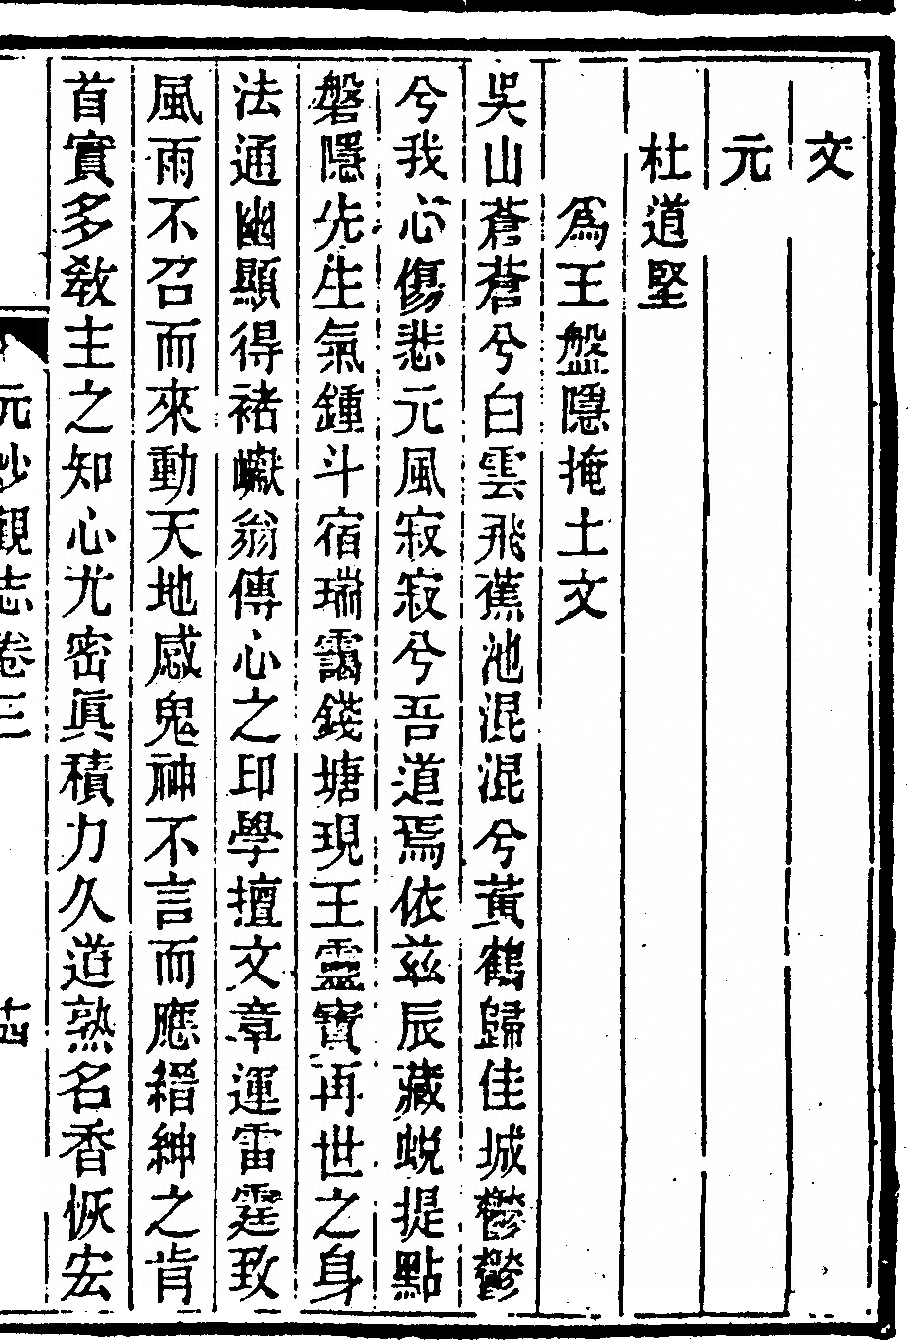 文
元
杜道堅
爲王盤隱掩土文
吳山蒼蒼兮白雲飛蕉池混混兮黃鶴歸佳城鬱鬱
兮我心傷悲元風寂寂兮吾道焉依茲辰藏蛻提點
磐隱先生氣鍾斗宿瑞靄錢塘現王靈寶再世之身
法通幽顯得褚巘翁傳心之印學擅文章運雷霆致
風雨不召而來動天地感鬼神不言而應縉紳之肯
首實多敎主之知心尤密眞積力久道熟名香恢宏
元妙觀志卷三
十四